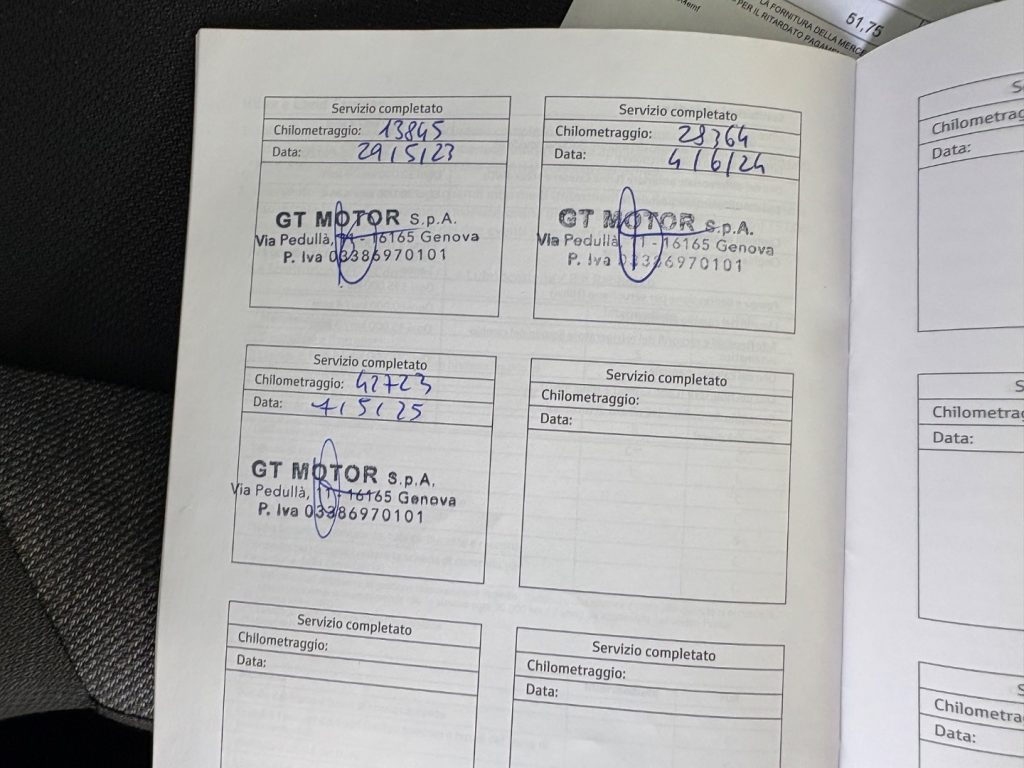 51,75
LA FORNITURA DELLA MERCE
PER IL RITARDATO
Servizio completato
Chilometraggio: 13845
Data: 29/5/23
GT MOTOR S.p.A.
Via Pedullà, 11 - 16165 Genova
P. Iva 03386970101
Servizio completato
Chilometraggio: 28364
Data: 4/6/24
GT MOTOR S.p.A.
Via Pedullà, 11 - 16165 Genova
P. Iva 03386970101
Servizio completato
Chilometraggio: 42723
Data: 7/5/25
GT MOTOR S.p.A.
Via Pedullà, 11 - 16165 Genova
P. Iva 03386970101
Servizio completato
Chilometraggio:
Data:
Servizio completato
Chilometraggio:
Data:
Servizio completato
Chilometraggio:
Data:
Data:
Data:
Data: